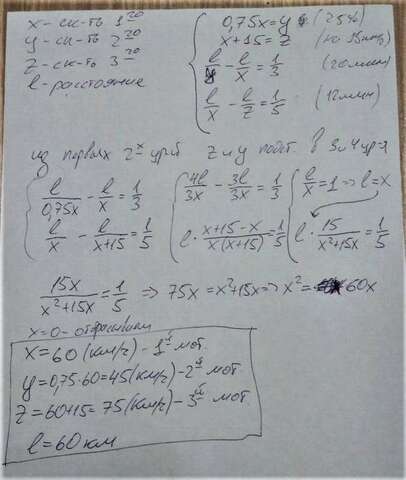 x - ск-ть 1го
y - ск-ть 2го
z - ск-ть 3го
l - расстояние
0,75x = y (25%)
x + 15 = z (на 15км/ч)
l/y - l/x = 1/3 (20 мин)
l/x - l/z = 1/5 (12 мин)
из первых 2х ур-й z и y подст. в 3 и 4 ур-я
l/0,75x - l/x = 1/3
l/x - l/x+15 = 1/5
4l/3x - 3l/3x = 1/3
l · x+15-x/x(x+15) = 1/5
l/x = 1 => l = x
l · 15/x²+15x = 1/5
15x/x²+15x = 1/5 => 75x = x²+15x => x² = 60x
x=0 - отбрасываем
x = 60 (км/ч) - 1й мот.
y = 0,75·60 = 45 (км/ч) - 2й мот.
z = 60+15 = 75 (км/ч) - 3й мот.
l = 60 км